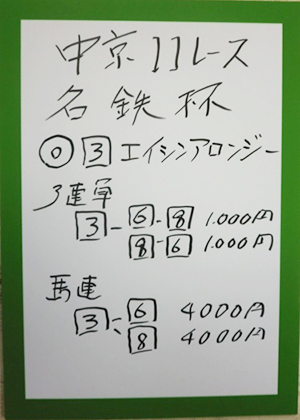 中京11レース
名鉄杯
◎ 3 エイシンアロンジー
3連単
3-6-8 1.000円
8-6 1.000円
馬連
3-6 4000円
8 4000円